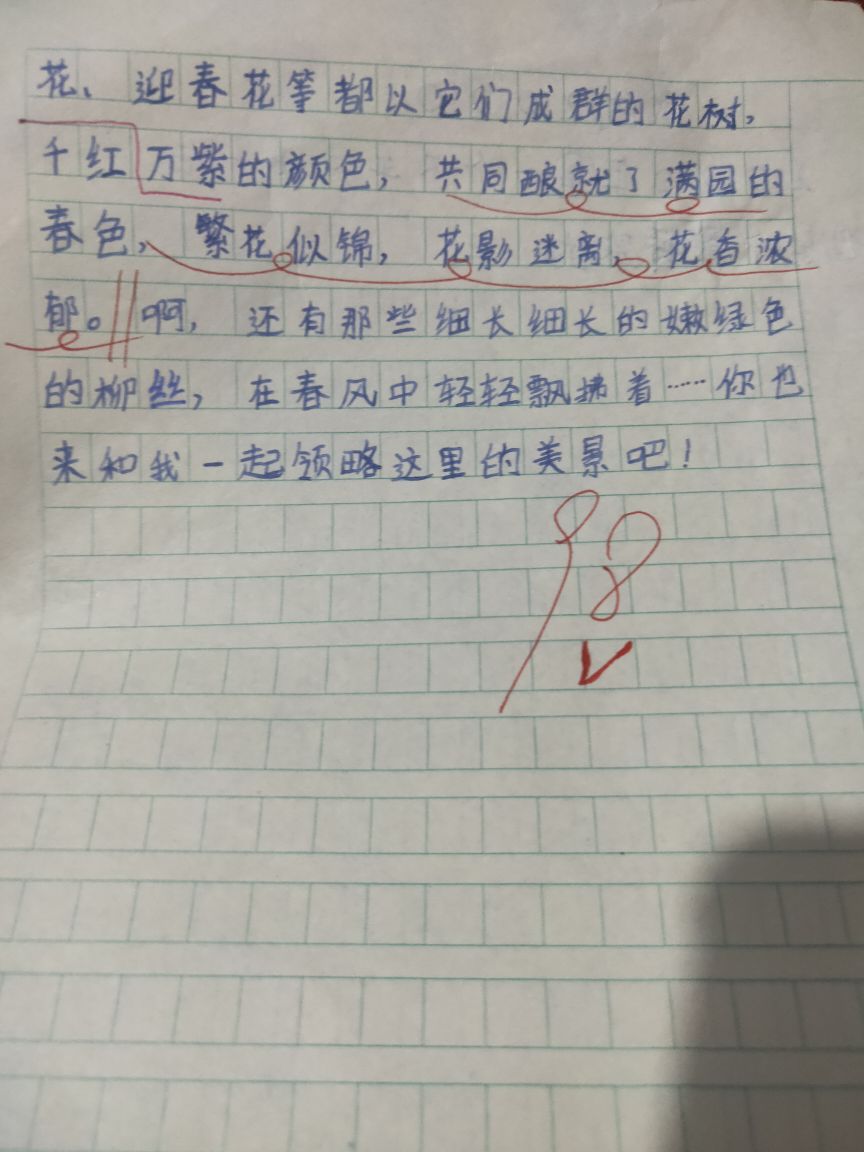 花、迎春花等都以它们成群的花树，
千红万紫的颜色，共同酿就了满园的
春色，繁花似锦，花影迷离，花香浓
郁。啊，还有那些细长细长的嫩绿色
的柳丝，在春风中轻轻飘拂着……你也
来和我一起领略这里的美景吧！
98